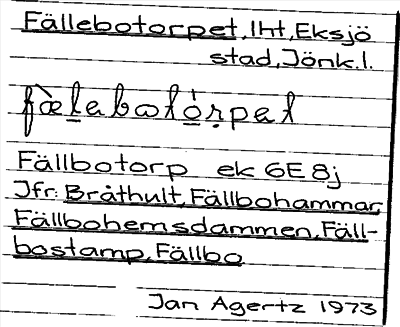 Fällebotorpet, lht, Eksjö
stad, Jönk.l.
fæ̀lebotórpet
Fällbotorp ek 6E8j
Jfr: Bråthult, Fällbohammar,
Fällbohemsdammen, Fäll-
bostamp, Fällbo
Jan Agertz 1973